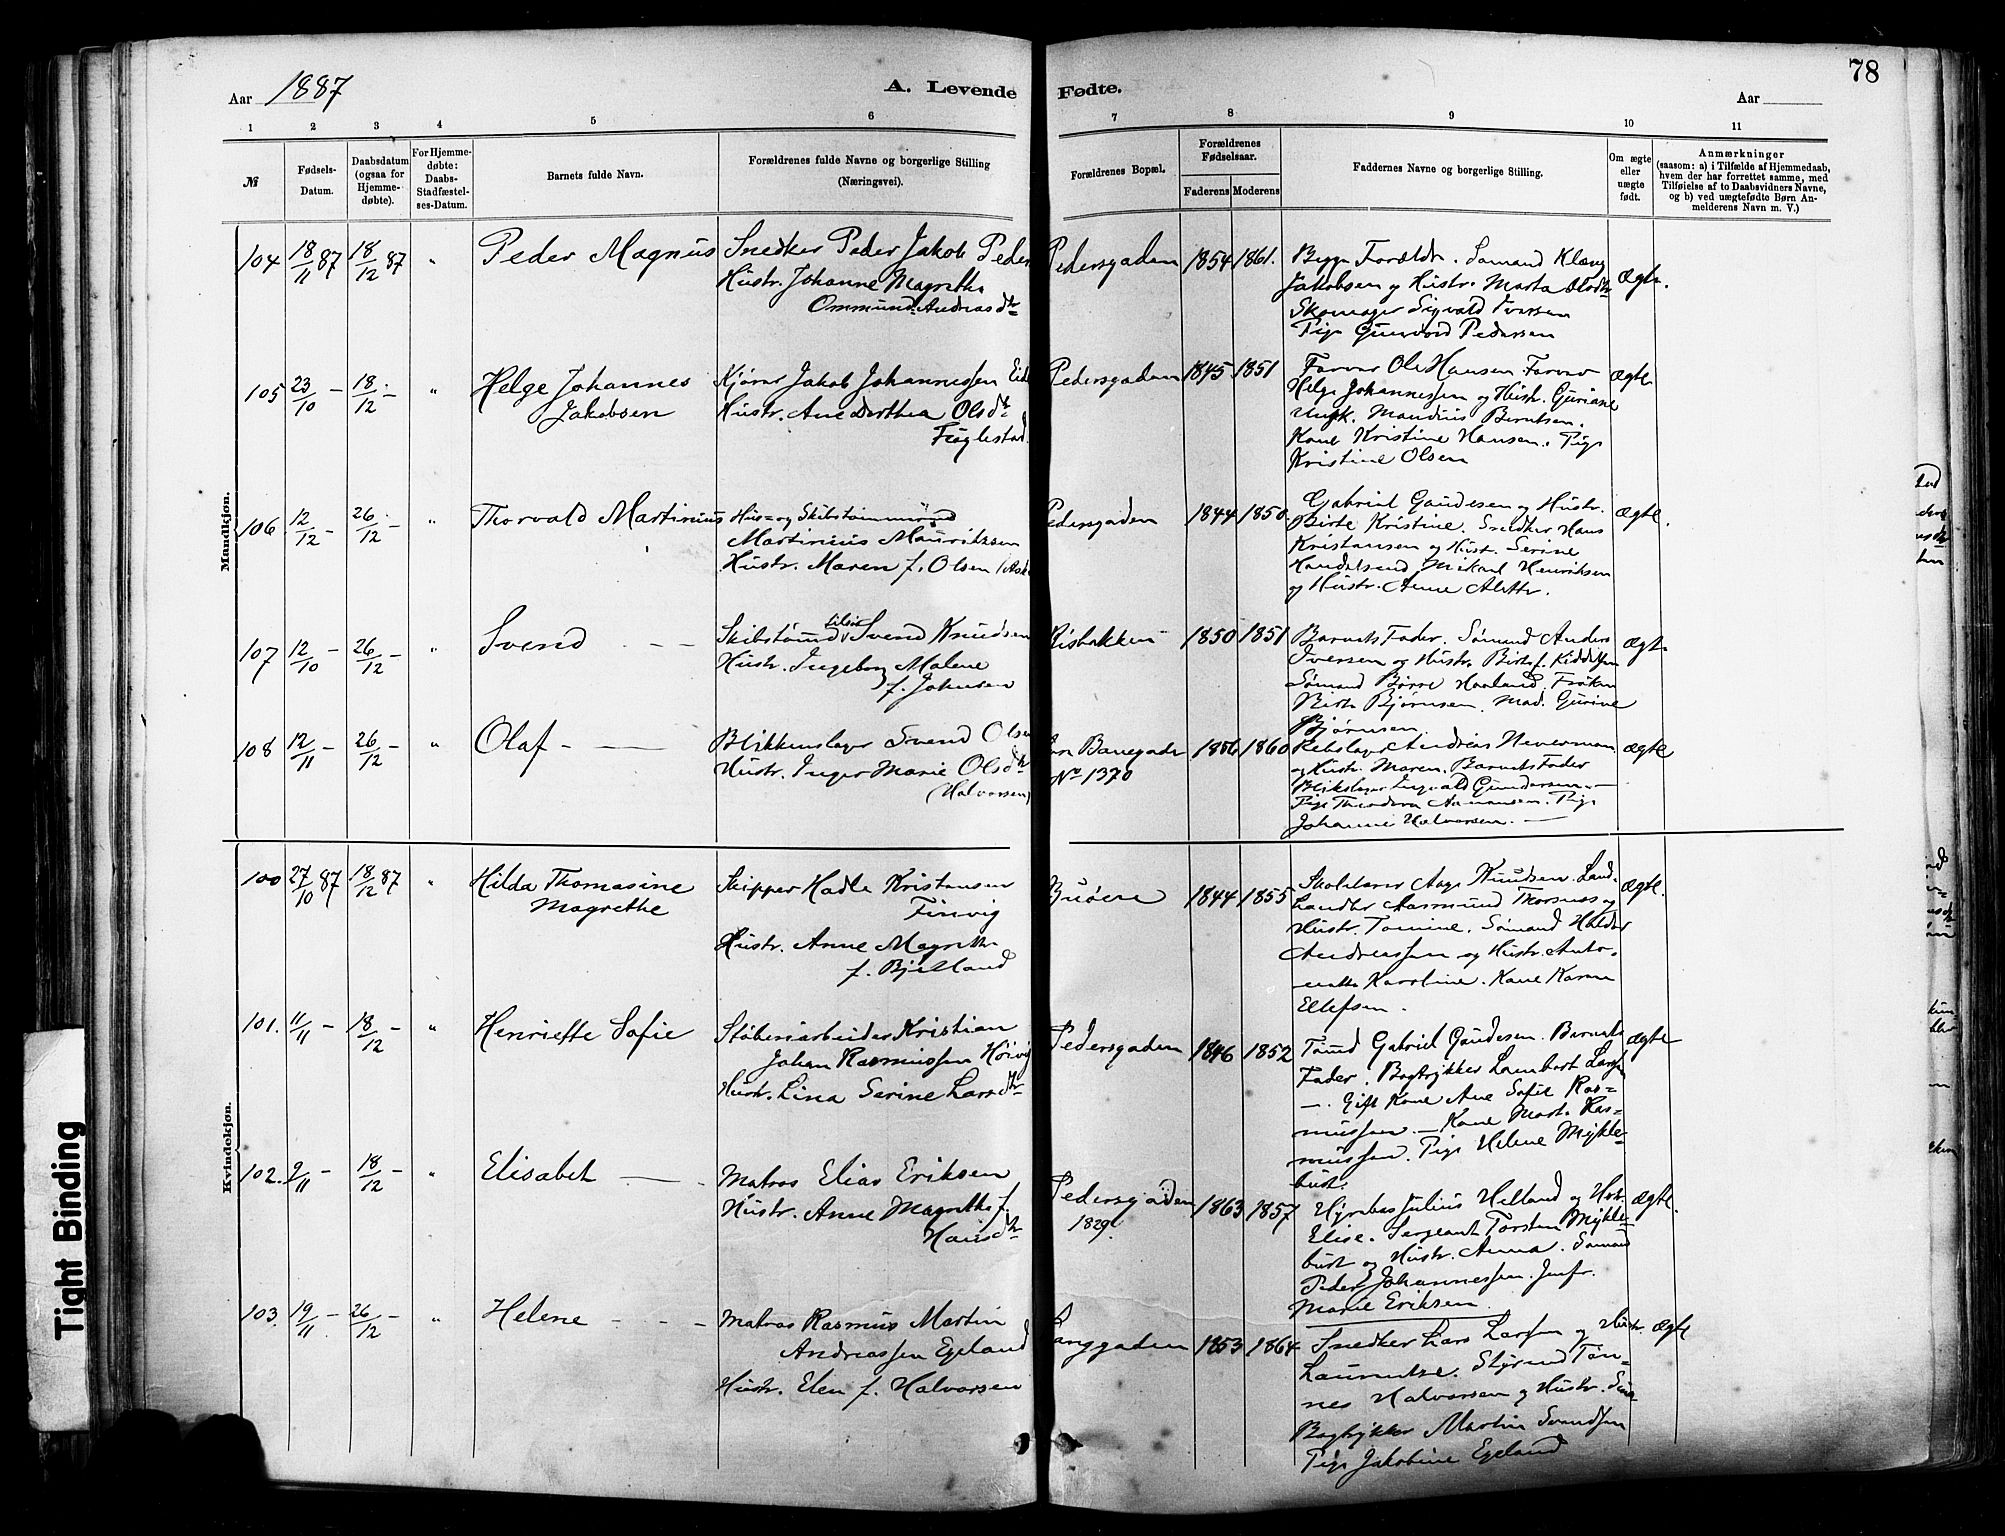 78
Aar 1887
A. Levende Fødte.
Aar
1 2 3 4 5 6 7 8 9 10 11
№
Fødsels-Datum.
Daabsdatum (ogsaa for Hjemme-døbte).
For Hjemme-døbte: Daabs-Stadfæstel-ses-Datum.
Barnets fulde Navn.
Forældrenes fulde Navne og borgerlige Stilling
(Næringsvei).
Forældrenes Bopæl.
Forældrenes Fødselsaar.
Faderens Moderens
Faddernes Navne og borgerlige Stilling.
Om ægte eller uægte født.
Anmærkninger
(saasom: a) i Tilfælde af Hjemmedaab,
hvem der har forrettet samme, med
Tilføielse af to Daabsvidners Navne,
og b) ved uægtefødte Børn An-
melderens Navn m. V.)
Mandkjøn.
104 18/11 87 18/12 87 " Peder Magnus
Snedker Peder Jakob Peder
Hustr. Johanne Magrethe
Ommund. Andreasdtr
Pedersgaden 1854 1861.
Begge Forældr. Sømand
Jakobsen og Hustr. Marta
Skomager Sigvald Iversen
Pige Gunvord Pedersen
Ægte.
105 23/10 - 18/12 - " Helge Johannes
Jakobsen
Kjører Jakob Johannessen
Hustr. Ane Dorthea Olsdtr
Fuglestad.
Pedersgaden 1845 1851
Farver Ole Hansen. Farver
Helge Johannessen og Hustr. Guriane
Ungk. Mandius Berntsen.
Kone Kristine Hansen. Pige
Kristine Olsen
Ægte.
106 12/12 - 26/12 - " Thorvald Martinius
Hus- og Skibstømmermd
Martinius Mauritzsen
Hustr. Maren f. Olsen
Pedersgaden 1844 1850
Gabriel Gaudesen og Hustr.
Birte Kristine. Snedker Hans
Kristansen og Hust. Serine
Handelsmd Mikael Henriksen
og Hustr. Anne
ægte.
107 12/10 - 26/12 - " Svend
Skibstømmd Svend Knudsen
Hustr. Ingeborg Malene
f. Johnsen
Risbakken 1850 1851
Barnets Fader. Sømand Anders
Iversen og Hustr. Birte f.
Sømand Børre Haaland. Frøken
Birte Bjørnsen. Mad. Gurine
Bjørnsen
Ægt.
108 12/11 - 26/12 - " Olaf
Blikkenslager Svend Olsen
Hustr. Inger Marie Olsdtr
(Halvorsen)
Banegade
No 1370
1856 1860
Rebslager Andreas
og Hustr. Maren. Barnets Fader
Blikslager Ingvald Gundersen
Pige Theodora. Pige
Johanne Halvorsen.
ægte
Kvindekjøn.
100 27/10 87 18/12 87 " Hilda Thomasine
Magrethe
Skipper Hadle Kristensen
Finvig
Hustr. Anne Magrethe
f. Bjelland
Buøen 1844 1855
Skolelærer Aage Knudsen. Land-
handler Aasmund Thorsnes og
Hustr. Tomine. Sømand Haldor
Andreassen og Hustr. Anto-
nette Karoline. Kone Karen
Ellefsen.
Ægte.
101. 11/11 - 18/12 - " Henriette Sofie
Støberiarbeider Kristian
Johan Rasmussen Høivig
Hustr. Lina Serine Larsdtr
Pedersgaden 1846 1852
Tømmd Gabriel Gaudesen. Barnets
Fader. Bogtrykker Lambert Lars
Gift Kone Ane Sofie Ras-
mussen — Kone Marte Ras-
mussen. Pige Helene Mykle-
bust.
ægte
102. 9/11 - 18/12 - " Elisabet
Matros Elias Eriksen
Hustr. Anne Magrethe f.
Hansdtr
Pedersgaden
1829.
1863 1857
Hyrebas Julius Helland og Hustr.
Elise. Sergeant Torsten Mykle-
bust og Hustr. Anna. Sømand
Peder Johannessen. Jmfr.
Marie Eriksen
ægte.
103. 19/11 - 26/12 - " Helene
Matros Rasmus Martin
Andreassen Egeland
Hustr. Elen f. Halvorsen
Langgaden 1853 1864
Snedker Lars Larsen og Hustr.
Laurentse. Styrmd Tøn-
nes Halvorsen og Hustr.
Bogtrykker Martin Svendsen
Pige Jakobine Egeland
ægte
Tight Binding